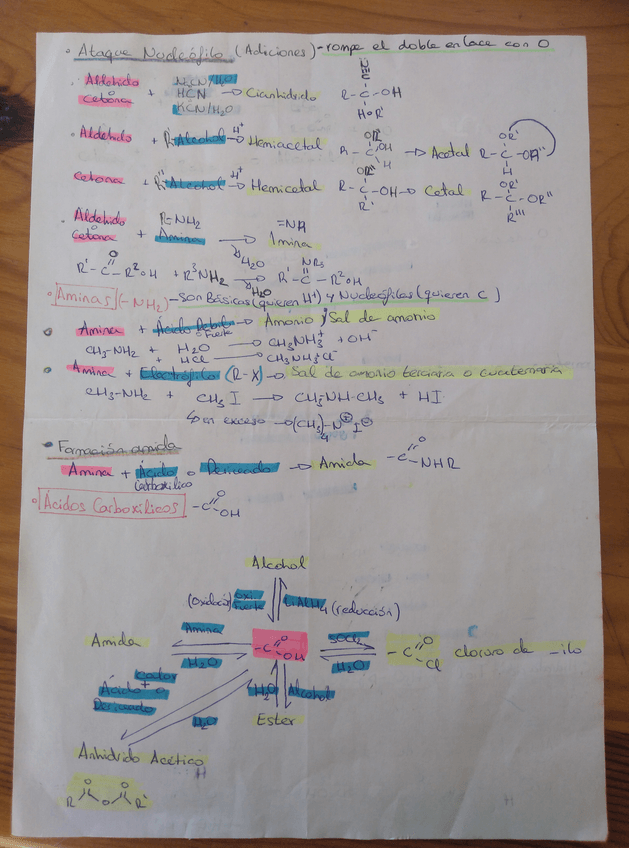 • Ataque Nucleófilo (Adiciones) - rompe el doble enlace con O
• Aldehido
Cetona + HCN → Cianhidrido
KCN/H₂O
N≡C
R-C-OH
HoR'
• Aldehido + R-Alcohol H⁺→ Hemiacetal R-C-OH → Acetal R-C-OR''
OR'
H
Cetona + R''Alcohol H⁺→ Hemicetal R-C-OH → Cetal R-C-OR''
OR'
R'
R'''
• Aldehido
Cetona + R-NH₂ Amina → Imina =NR
H₂O
R'-C-R²OH + R³NH₂ → R'-C-R²OH
O
NR₃
H₂O
• Aminas (-NH₂) - son Básicas (quieren H⁺) y Nucleófilas (quieren C)
• Amina + Ácido Débil o Fuerte → Amonio / Sal de amonio
CH₃-NH₂ + H₂O → CH₃NH₃⁺ + OH⁻
+ HCl → CH₃NH₃Cl⁻
• Amina + Electrófilo (R-X) → Sal de amonio terciaria o cuaternaria
CH₃-NH₂ + CH₃I → CH₃NH-CH₃ + HI
↳ en exceso → (CH₃)₄-N⊕ I⊖
• Formación amida
Amina + Ácido Carboxilico o Derivado → Amida -C-NHR
O
• Ácidos Carboxilicos -C-OH
O
Alcohol
(Oxidación) oxi fuerte LiAlH₄ (reducción)
Amida Amina H₂O -C-OH SOCl₂ H₂O -C-Cl cloruro de -ilo
O
O
calor
+
Ácido o
Derivado
H₂O
H₂O Alcohol
Ester
Anhidrido Acético
O O
R O R'